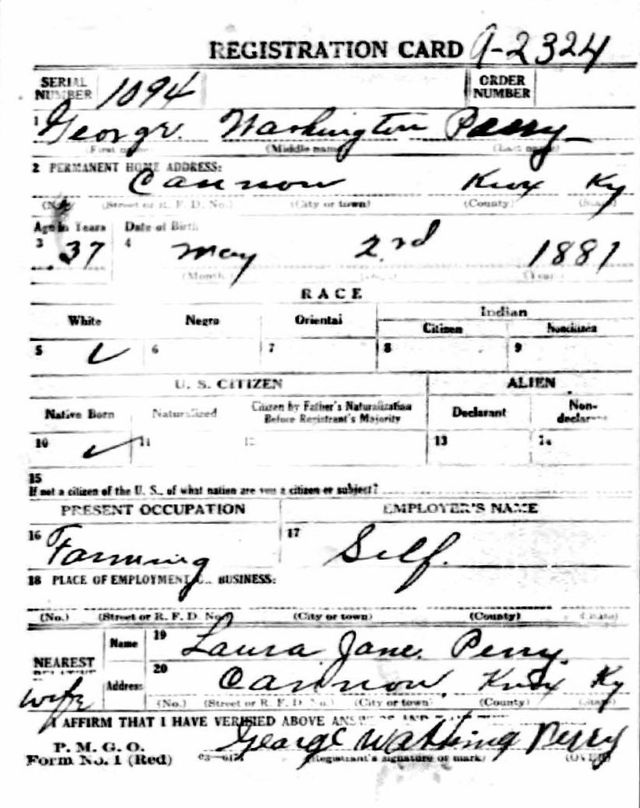 REGISTRATION CARD A-2324
SERIAL NUMBER 1094 ORDER NUMBER
1 George Washington Perry
(First name) (Middle name) (Last name)
2 PERMANENT HOME ADDRESS:
Cannon Knox Ky
(No.) (Street or R. F. D. No.) (City or town) (County) (State)
Age in Years Date of Birth
3 37 4 May 2nd 1881
(Month.) (Year.)
RACE
White Negro Oriental Indian
Citizen Noncitizen
5 ✓ 6 7 8 9
U. S. CITIZEN ALIEN
Native Born Naturalized Citizen by Father's Naturalization Before Registrant's Majority Declarant Non-declarant
10 ✓ 11 12 13 14
15
If not a citizen of the U. S., of what nation are you a citizen or subject?
PRESENT OCCUPATION EMPLOYER'S NAME
16 Farming 17 Self.
18 PLACE OF EMPLOYMENT BUSINESS:
(No.) (Street or R. F. D. No.) (City or town) (County) (State)
NEAREST RELATIVE Name 19 Laura Jane Perry
wife Address 20 Cannon Knox Ky
(No.) (Street or R. F. D. No.) (City or town) (County) (State)
I AFFIRM THAT I HAVE VERIFIED ABOVE
P. M. G. O.
Form No. 1 (Red) George Washing Perry
(Registrant's signature or mark) (OVER)